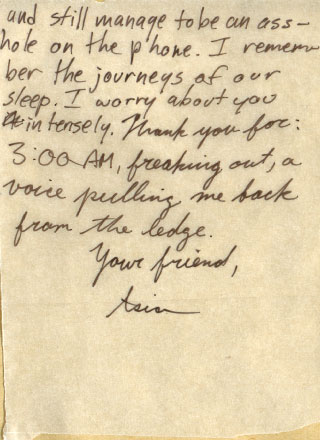 and still manage to be an ass-
hole on the phone. I remem-
ber the journeys of our
sleep. I worry about you
intensely. Thank you for:
3:00 AM, freaking out, a
voice pulling me back
from the ledge.
Your friend,
Asia